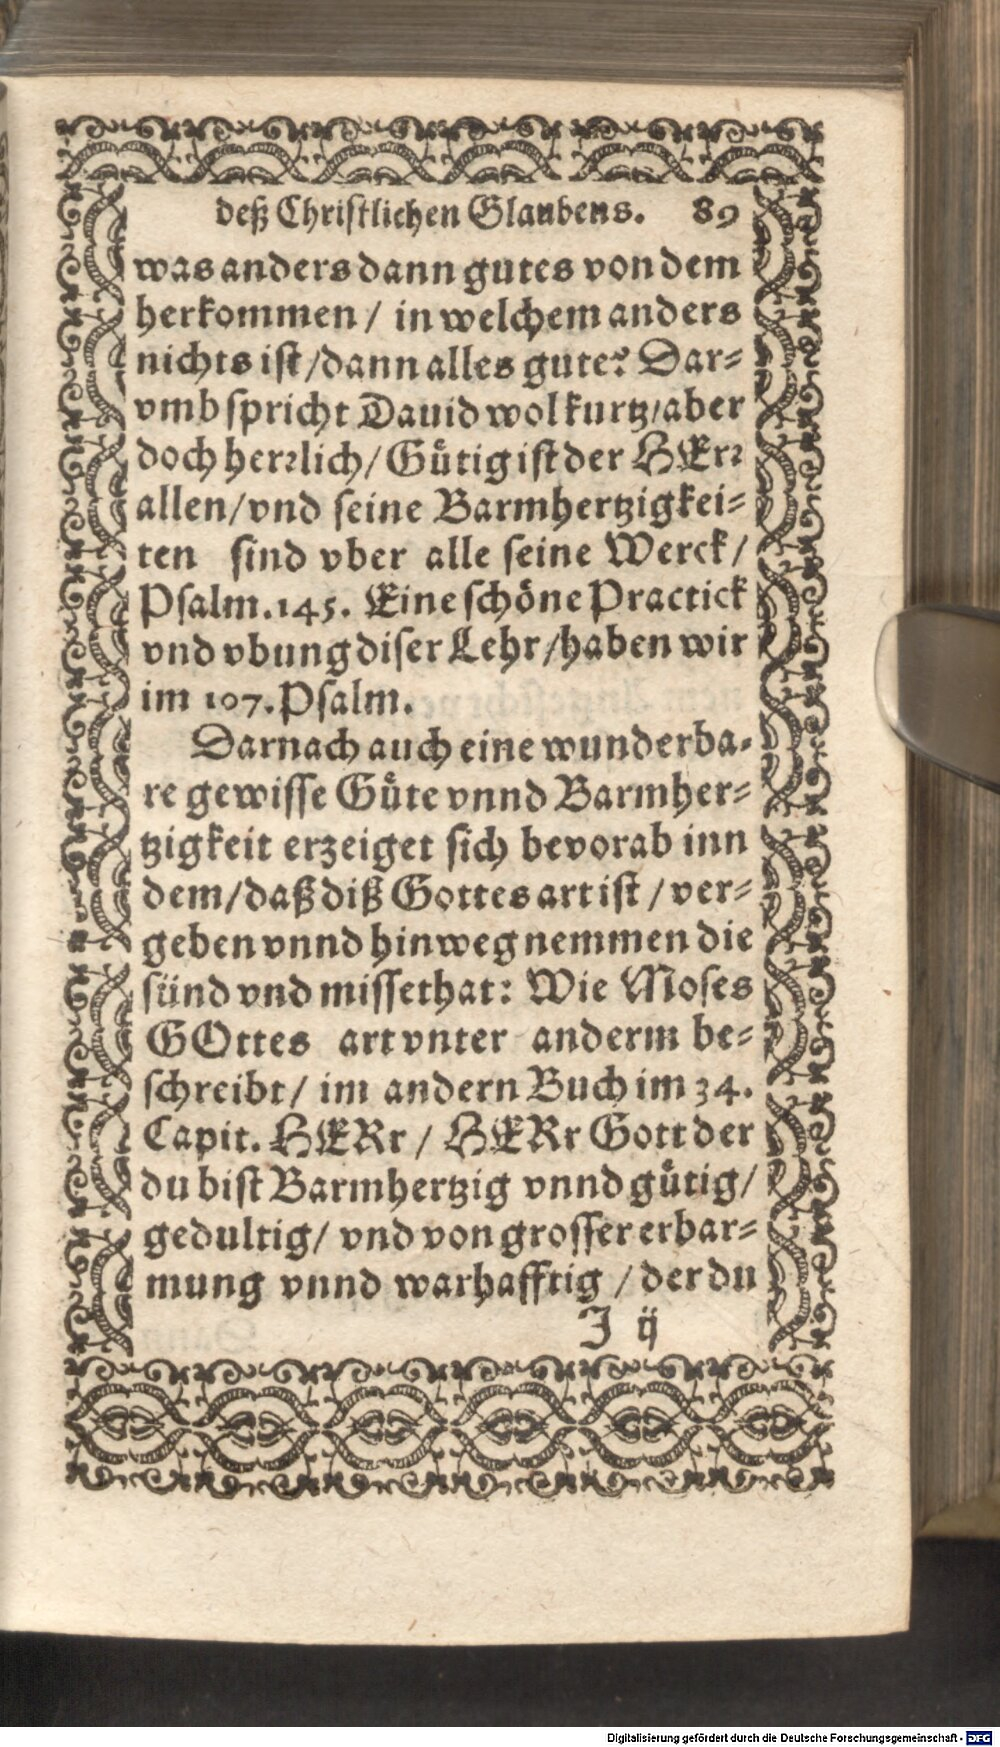 deß Christlichen Glaubens. 89
was anders dann gutes von dem
herkommen / in welchem anders
nichts ist / dann alles gute? Dar⸗
vmb spricht Dauid wol kurtz / aber
doch herrlich / Guͤtig ist der HErr
allen / vnd seine Barmhertzigkei⸗
ten sind vber alle seine Werck /
Psalm. 145. Eine schoͤne Practick
vnd vbung diser Lehr / haben wir
im 107. Psalm.
Darnach auch eine wunderba⸗
re gewisse Guͤte vnnd Barmher⸗
tzigkeit erzeiget sich bevorab inn
dem / daß diß Gottes art ist / ver⸗
geben vnnd hinweg nemmen die
sünd vnd missethat: Wie Moses
GOttes art vnter anderm be⸗
schreibt / im andern Buch im 34.
Capit. HERr / HERr Gott der
du bist Barmhertzig vnnd guͤtig /
gedultig / vnd von grosser erbar⸗
mung vnnd warhafftig / der du
J ij
Digitalisierung gefördert durch die Deutsche Forschungsgemeinschaft - DFG